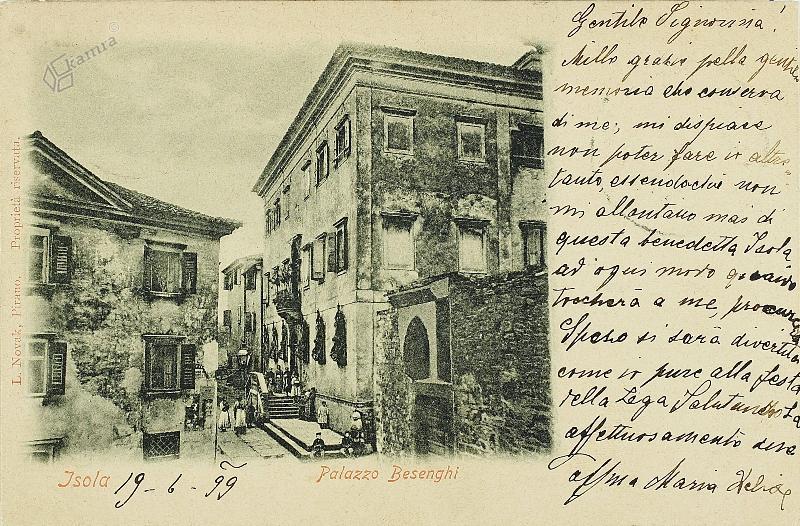 kamra
Gentile Signorina!
Mille grazie pella gentile
memoria che conserva
di me; mi dispiace
non poter fare io altre-
tanto, essendochè non
mi allontano mai di
questa benedetta Isola,
ad ogni modo quando
toccherà a me, procurerò
Spero si sarà divertita
come io pure alla festa
della Lega Salutandola
affettuosamente
affma Maria
L. Novak, Pirano. Proprietà riservata.
Isola 19-6-99
Palazzo Besenghi